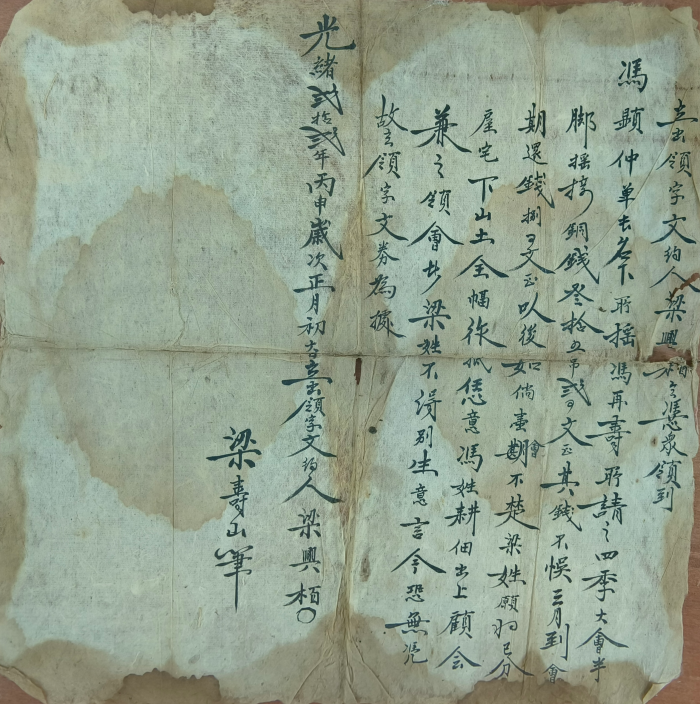 立出領字文約人梁興栢今憑衆領到
馮顯仲単去名下所搖馮再壽所請之四季大會半
脚搖接銅錢叁拾五吊弍百文正其錢不悞三月到會
期還錢捌百文正以後如倘臺會期不楚梁姓願將已分
産宅下山土全幅作抵恁意馮姓耕佃出上顧会
兼之領會步梁姓不得別生意言今恐無凴
故立領字文券為據
光緒弍拾弍年丙申歲次正月初六日立出領字文約人梁興栢〇
梁壽山筆